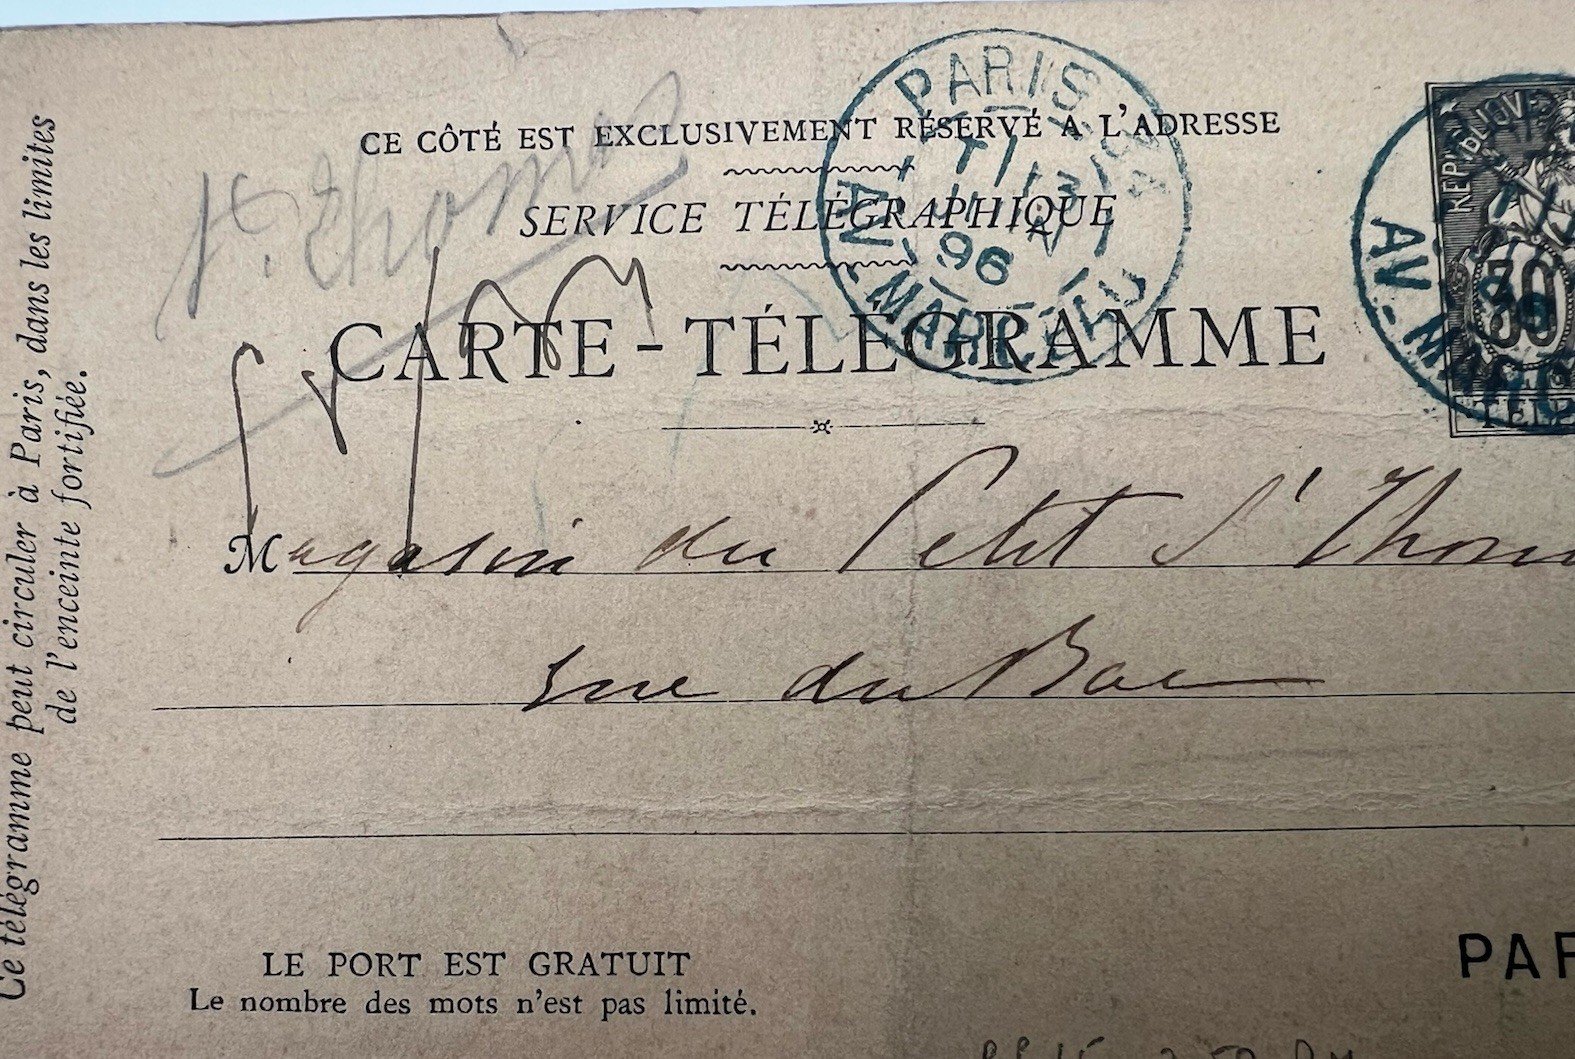 Ce télégramme peut circuler à Paris, dans les limites
de l'enceinte fortifiée.
CE CÔTÉ EST EXCLUSIVEMENT RÉSERVÉ A L'ADRESSE
SERVICE TÉLÉGRAPHIQUE
CARTE-TÉLÉGRAMME
St. Thomas
PARIS
96
AV-MARCEAU
RÉPUB
30
AV-MARC
TÉLÉ
Magasin du Petit St Thom
rue du Bac
LE PORT EST GRATUIT
Le nombre des mots n'est pas limité.
PAR